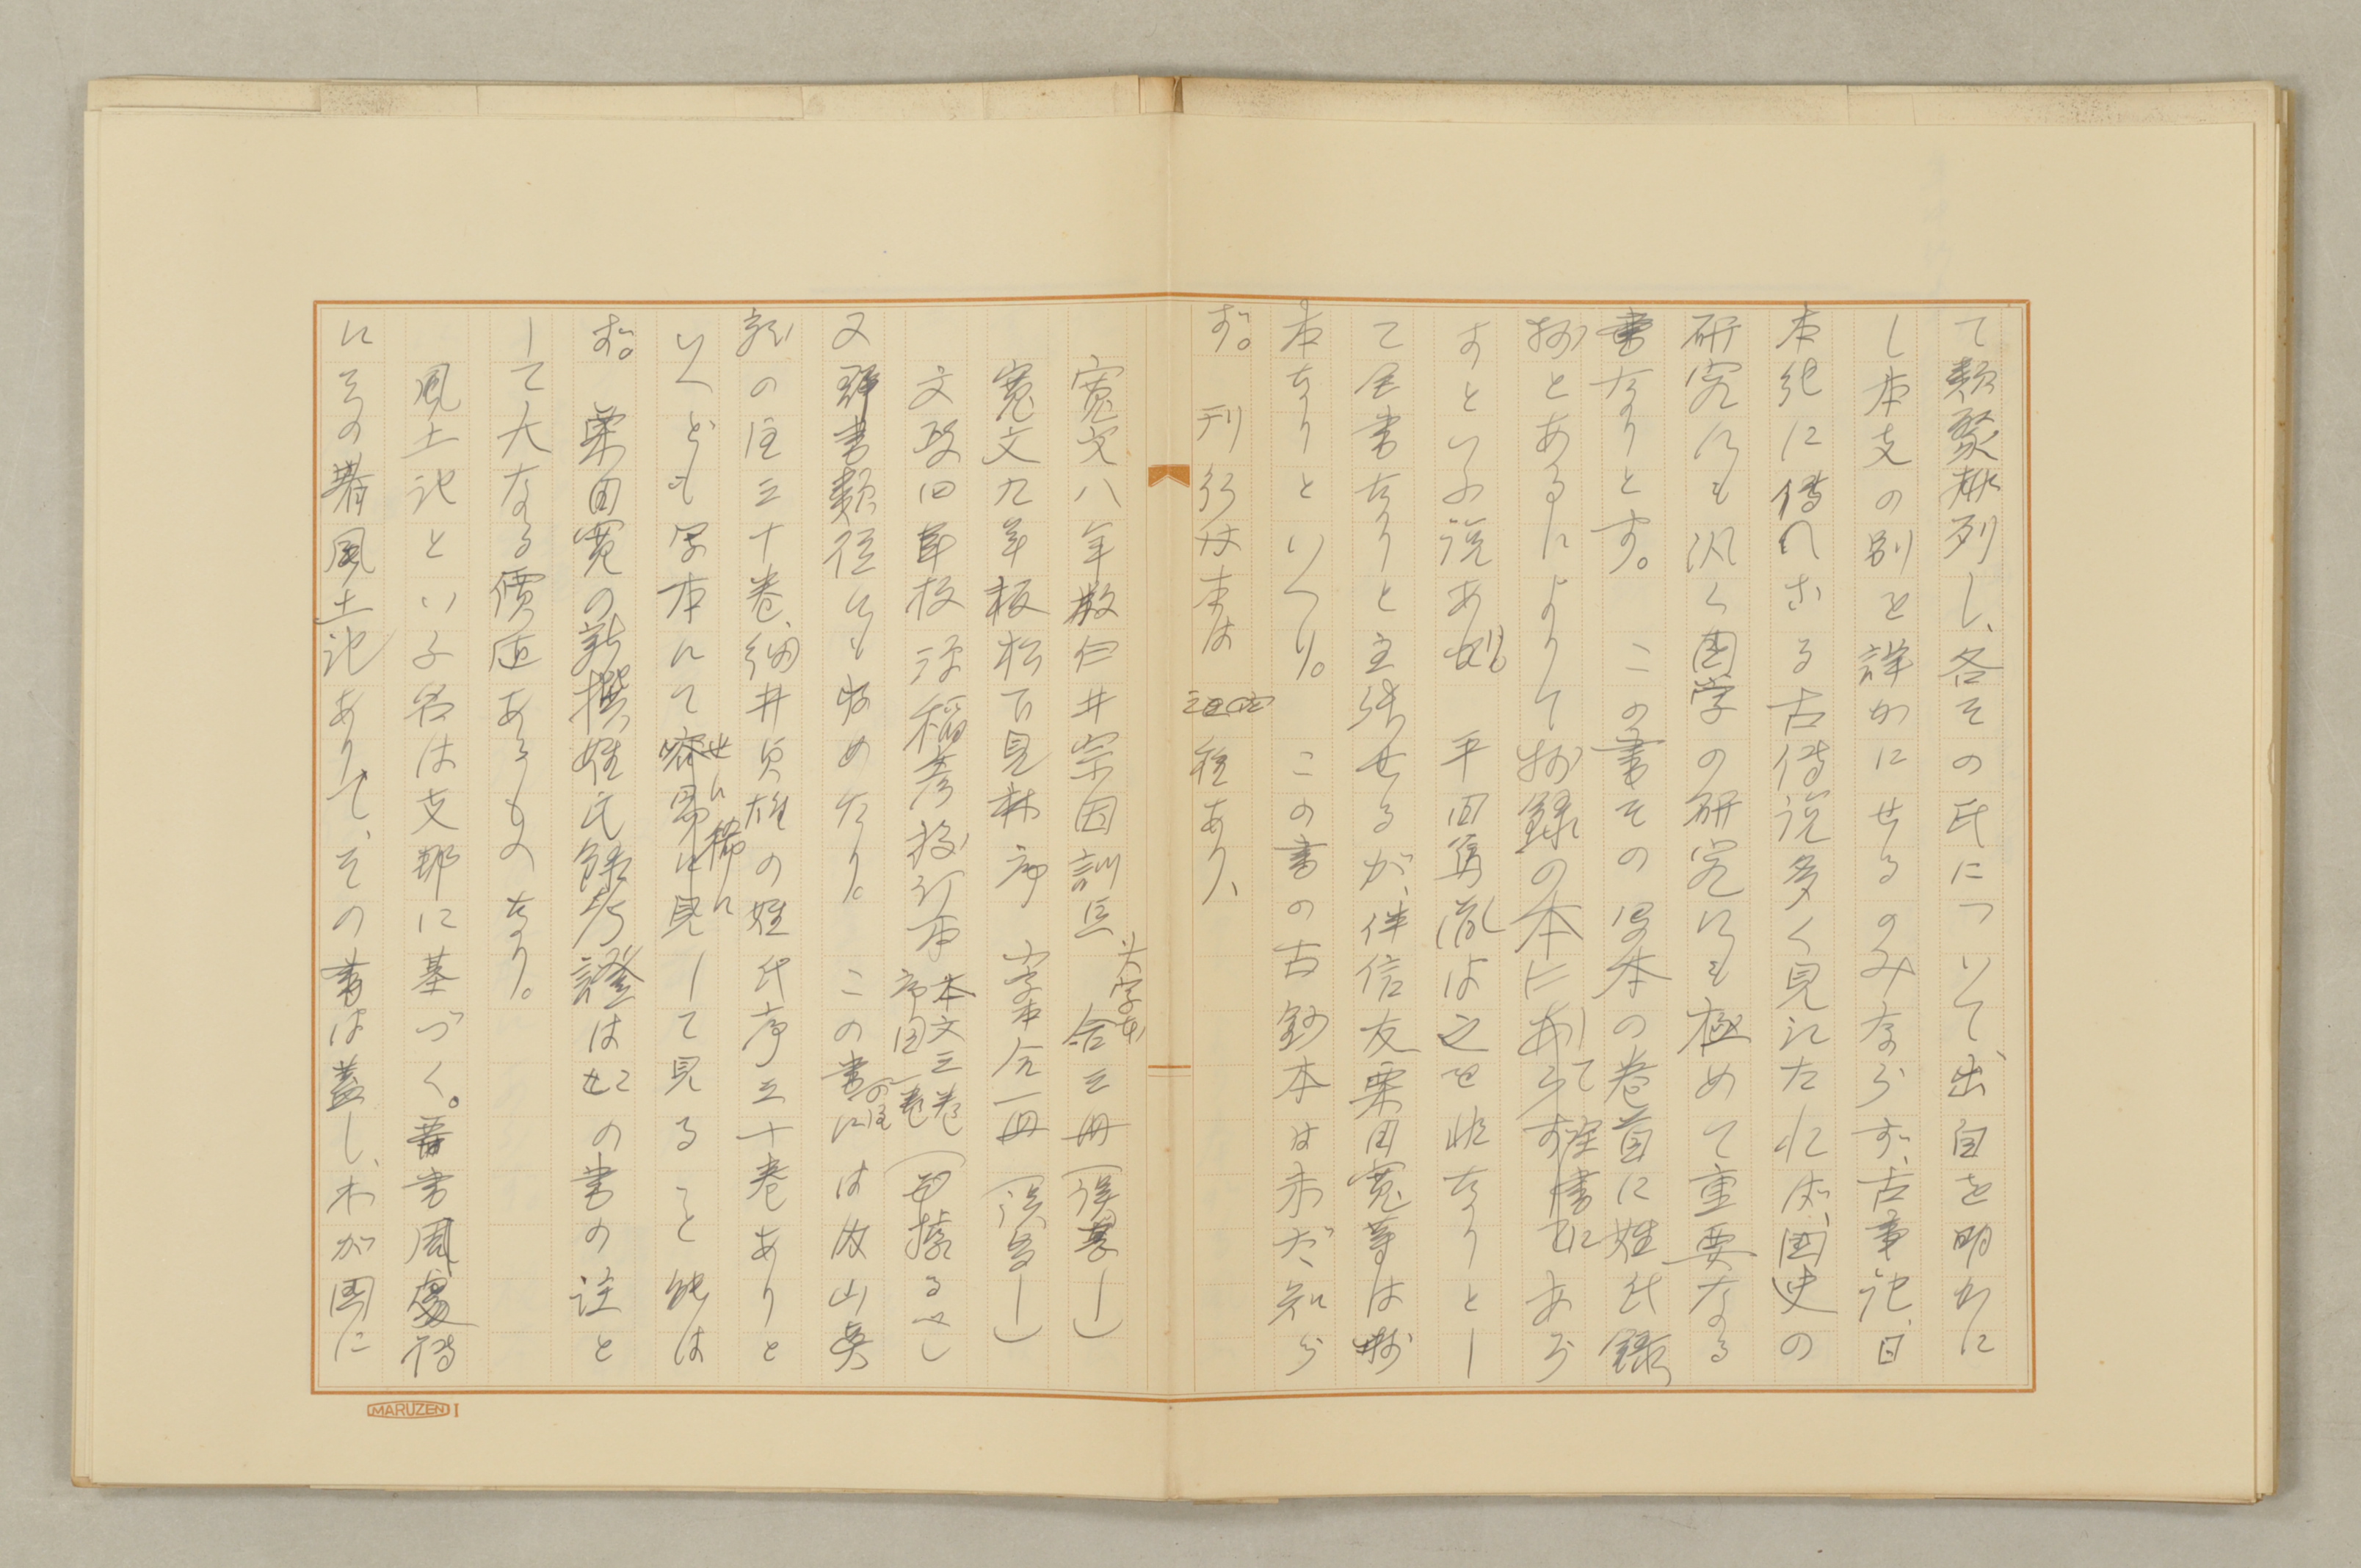 て類聚排列し、各その氏について、出自を明かに
し本支の別を詳かにせるのみならず、古事記、日
本紀に傳へざる古傳説多く見はれたれば、国史の
研究にも汎く国学の研究にも極めて重要なる
書なりとす。 この書その写本の巻首に姓氏録
抄とあるによりて抄録の本にして全書にあら
ずといふ説あれど 平田篤胤は之を非なりとし
て全書なりと主張せるが、伴信友栗田寛等は抄
本なりといへり。 この書の古鈔本は未だ知ら
ず。 刊行本は 三四種あり、
寛文八年版白井宗因訓点 大字本 合三冊(誤多し)
寛文九年板松下見林序 小字本合一冊(誤多し)
文政四年板源稲彦校訂本 本文三巻 序目一巻(可據るべし)
又群書類従にも收めたり。 この書の注には後山英
説の注三十巻、細井貞雄の姓氏序三十巻ありと
いへども写本にて世に稀に見して見ること能は
ず。 栗田寛の新撰姓氏録考證はこの書の註と
して大なる價値あるものなり。
風土記といふ名は支那に基づく。晋書周處傳
にその著風土記ありて、その書は蓋し、わが国に
MARUZEN I